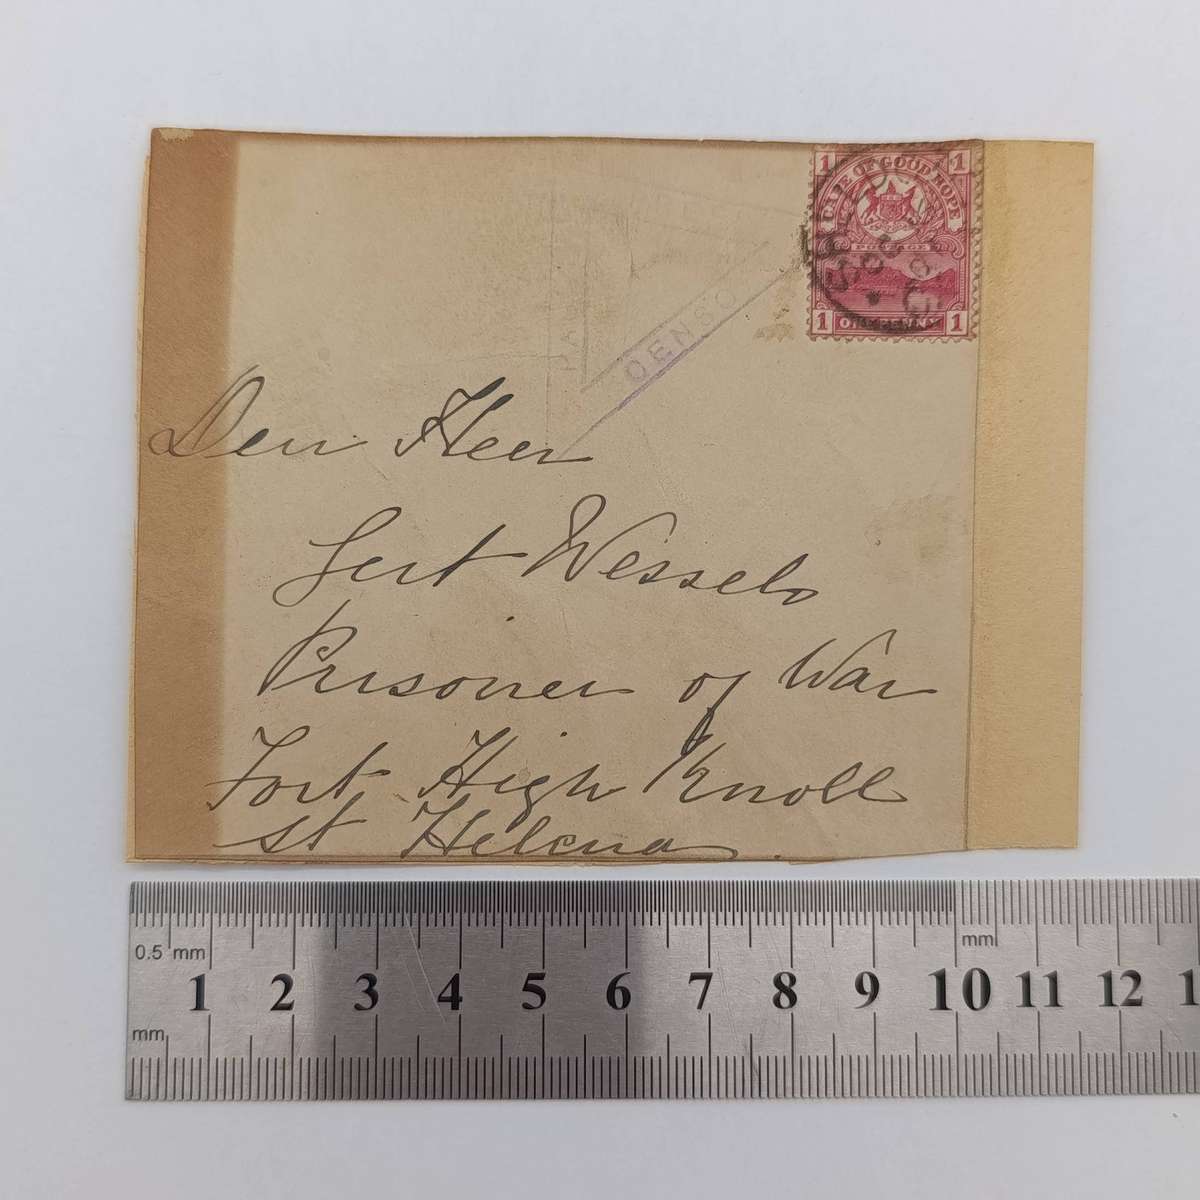 1 1
CAPE OF GOOD HOPE
POSTAGE
1 ONE PENNY 1
CENSO
Den Heer
Gert Wessels
Prisoner of War
Fort High Knoll
St Helena.
0.5 mm
mm
1 2 3 4 5 6 7 8 9 10 11 12 1
mm